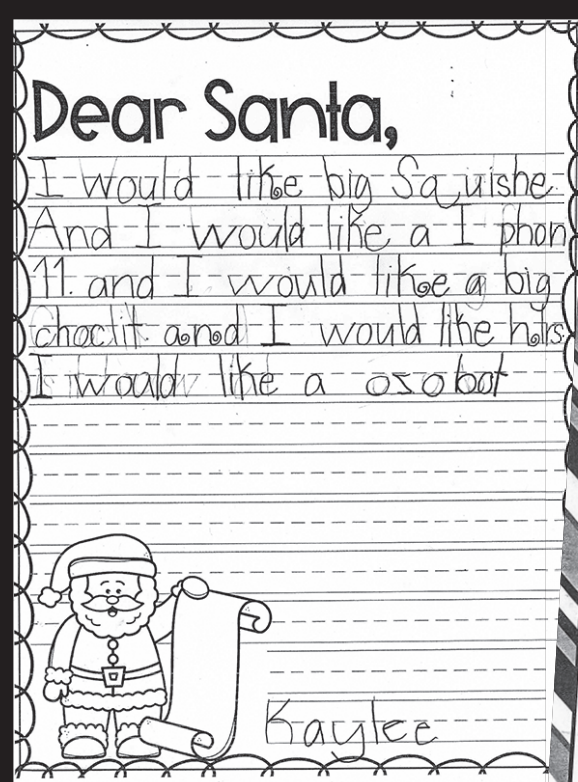 Dear Santa,
I would like big Squishe
And I would like a I phon
11. and I would like a big
choclit and I would like
I woald like a ozobot
Kaylee